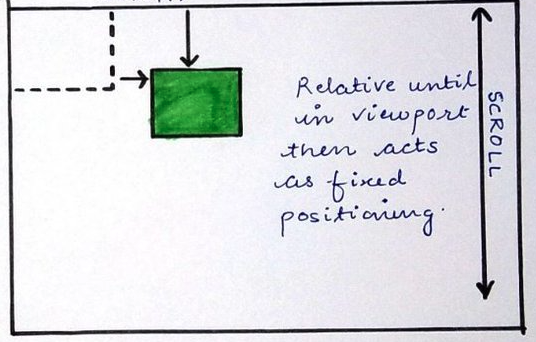 Relative until
in viewport
then acts
as fixed
positioning.
SCROLL